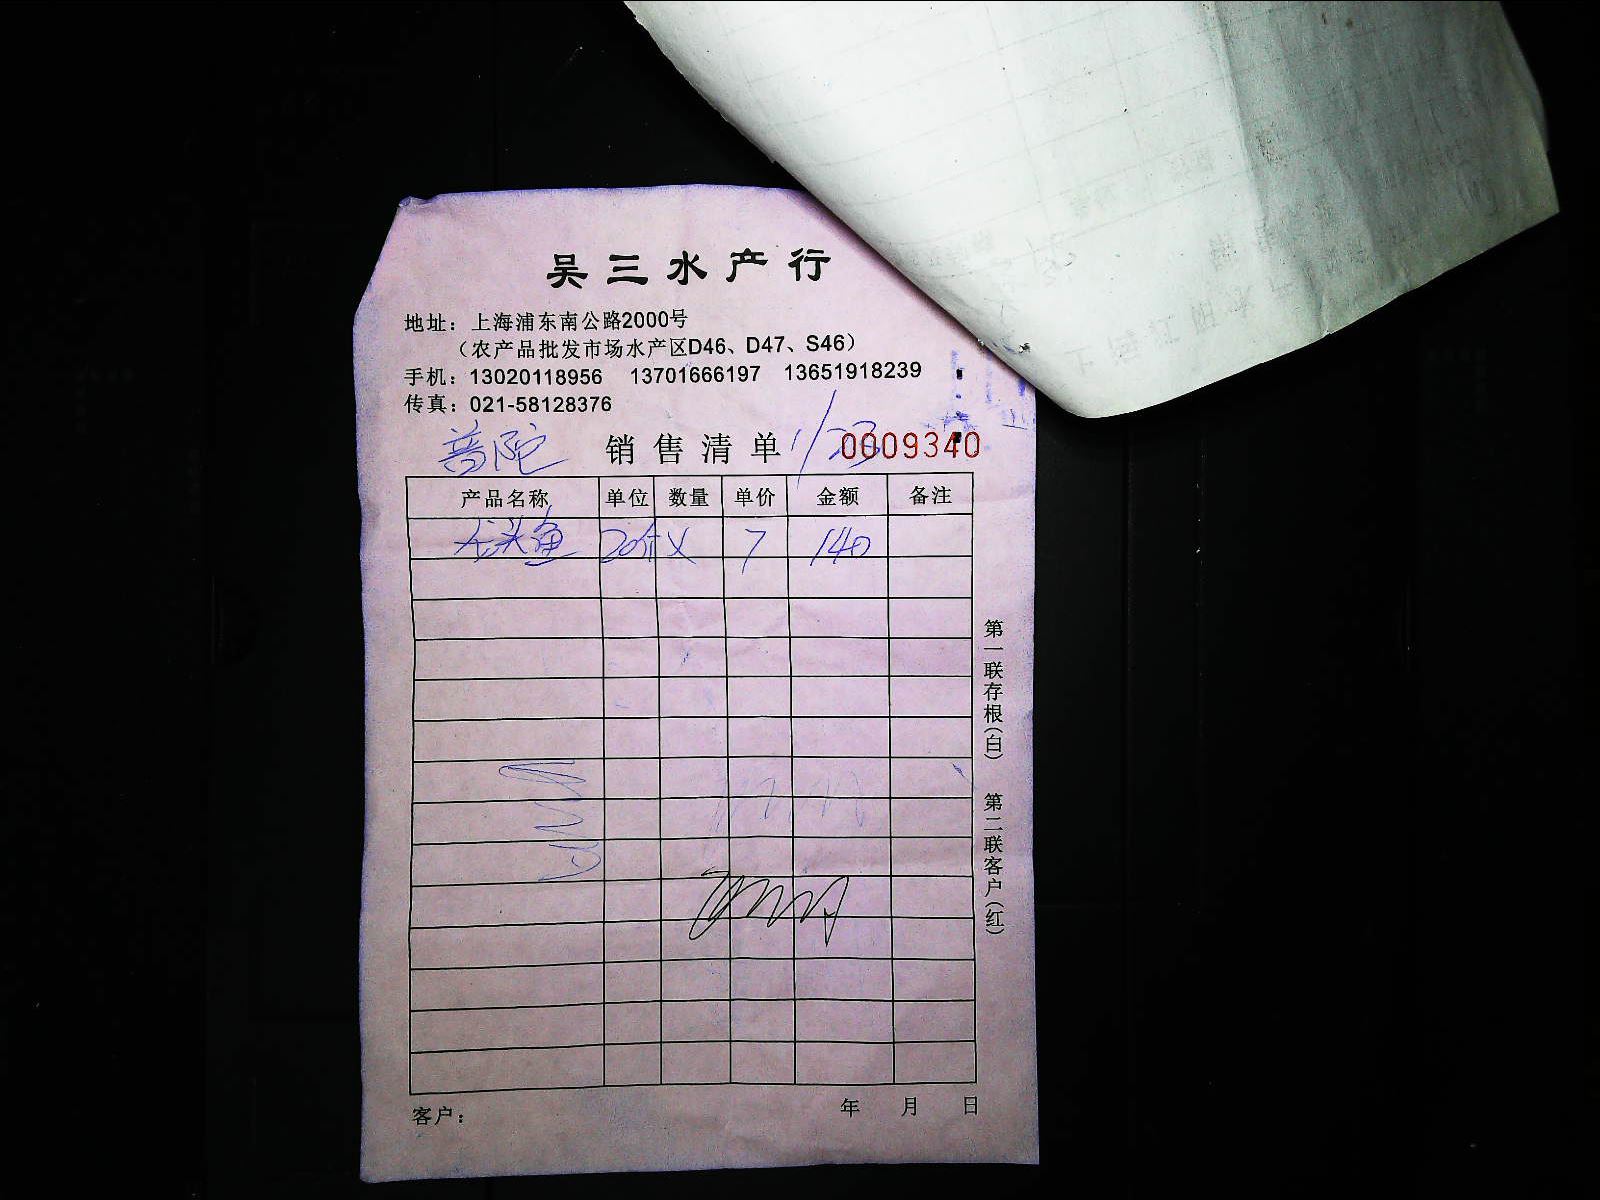 吴三水产行
地址：上海浦东南公路2000号
（农产品批发市场水产区D46、D47、S46）
手机：13020118956 13701666197 13651918239
传真：021-58128376
普陀 销售清单 1/23 0009340
产品名称 单位 数量 单价 金额 备注
无头鱼 20斤 × 7 140
第一联存根（白） 第二联客户（红）
客户： 年 月 日